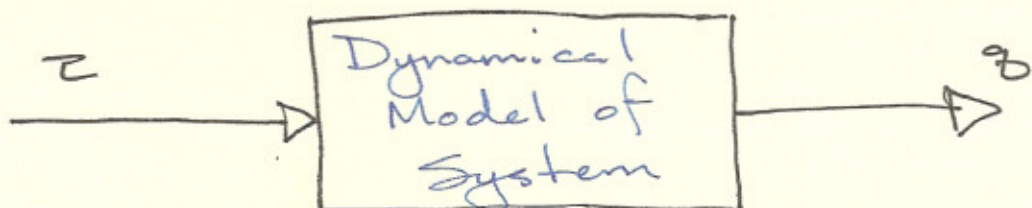 τ
Dynamical
Model of
System
q